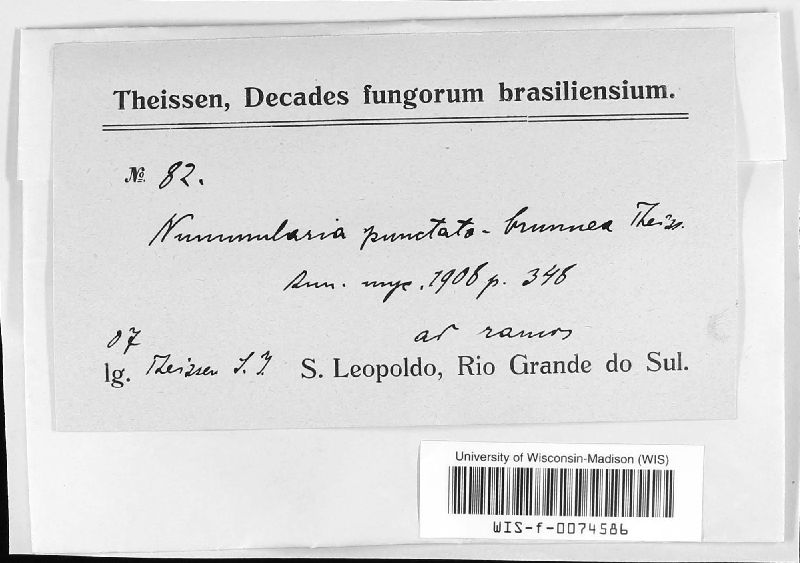 Theissen, Decades fungorum brasiliensium.
№ 82.
Nummularia punctato-brunnea Theiss.
Ann. myc. 1908 p. 348
ad ramos
07
lg. Theissen S. J. S. Leopoldo, Rio Grande do Sul.
University of Wisconsin-Madison (WIS)
WIS-f-0074586